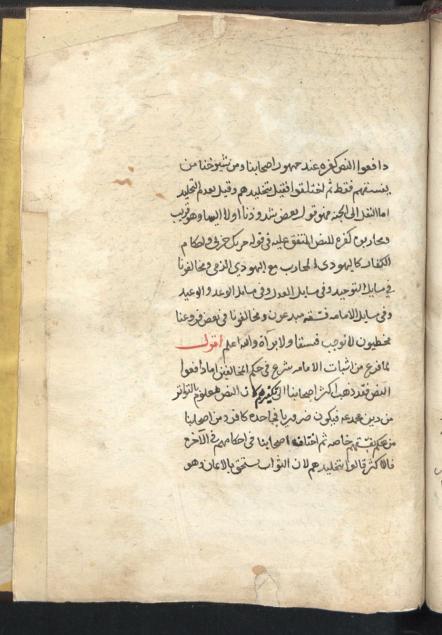 دافعوا النص كفرة عند جمهور اصحابنا ومن شيوخنا من
يفسقهم فقط ثم اختلفوا فقيل بتخليدهم وقيل بعدم التخليد
اما بالنقل الى الجنة وهو قول بعض شذوذنا اولا اليها وهو قريب
ومحاربوه كفرة للنص المتفق عليه في قوله حربك حربي واحكام
الكفار كاليهودي المحارب مع اليهودي الذمي ومخالفونا
في مسايل التوحيد وفي مسايل العدل وفي مسايل الوعد والوعيد
وفي مسايل الامامة فسقة مبدعون ومخالفونا في بعض فروعنا
مخطيون لا نوجب فسقا ولا براة والله اعلم اقول
لما فرغ من اثبات الامامه شرع في حكم المخالفين اما دافعوا
النص فقد ذهب اكثر اصحابنا الى تكفيرهم لان النص معلوم بالتواتر
من دين محمد فيكون ضروريا فجاحده كافر ومن اصحابنا
من حكم بفسقهم خاصه ثم اختلف اصحابنا في احكامهم في الآخرة
فالاكثر قالوا بتخليدهم لان الثواب يستحق بالايمان وهو